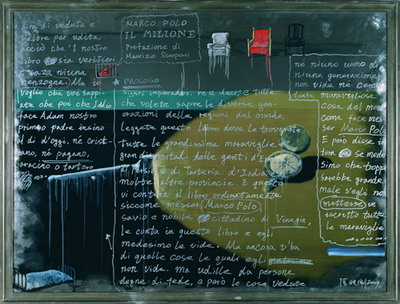 MARCO POLO
IL MILIONE
Prefazione di
Maurizio Scarpari
PROLOGO
Signori imperadori, re e duci e tutte
che volete sapere le diverse gen-
erazioni delle regioni del mondo,
leggete questo libro dove le trov
tutte le grandissime maraviglie
gran diversitadi delle genti d'E
di Persia di Tarteria d'India
molte altre provincie. E questo
vi conterà il libro ordinatamente
siccome messer Marco Polo,
savio e nobile cittadino di Vinegia,
le conta in questo libro e egli
medesimo le vide. Ma ancora v'ha
di quelle cose le quali egli
non vide. ma udille da persone
degne di fede, e però le cose vedute
dirà di veduta e
l'altre per udita,
acciò che 'l nostro
libro sia veritieri
senza niuna
menzogna. Ma io
voglio che voi sapp
iate che poi che Iddio
face Adam nostro
primo padre insino
al dì d'oggi, né crist-
iano, né pagano,
saracino o tartero
né niuno uomo di
niuna generazione
non vide né
tante maravigliose
cose del mondo
come fece mes
ser Marco Polo
E però disse
se mede
simo che troppo
sarebbe grande
male s'egli non
mettesse in
iscritto tutte
le maraviglie